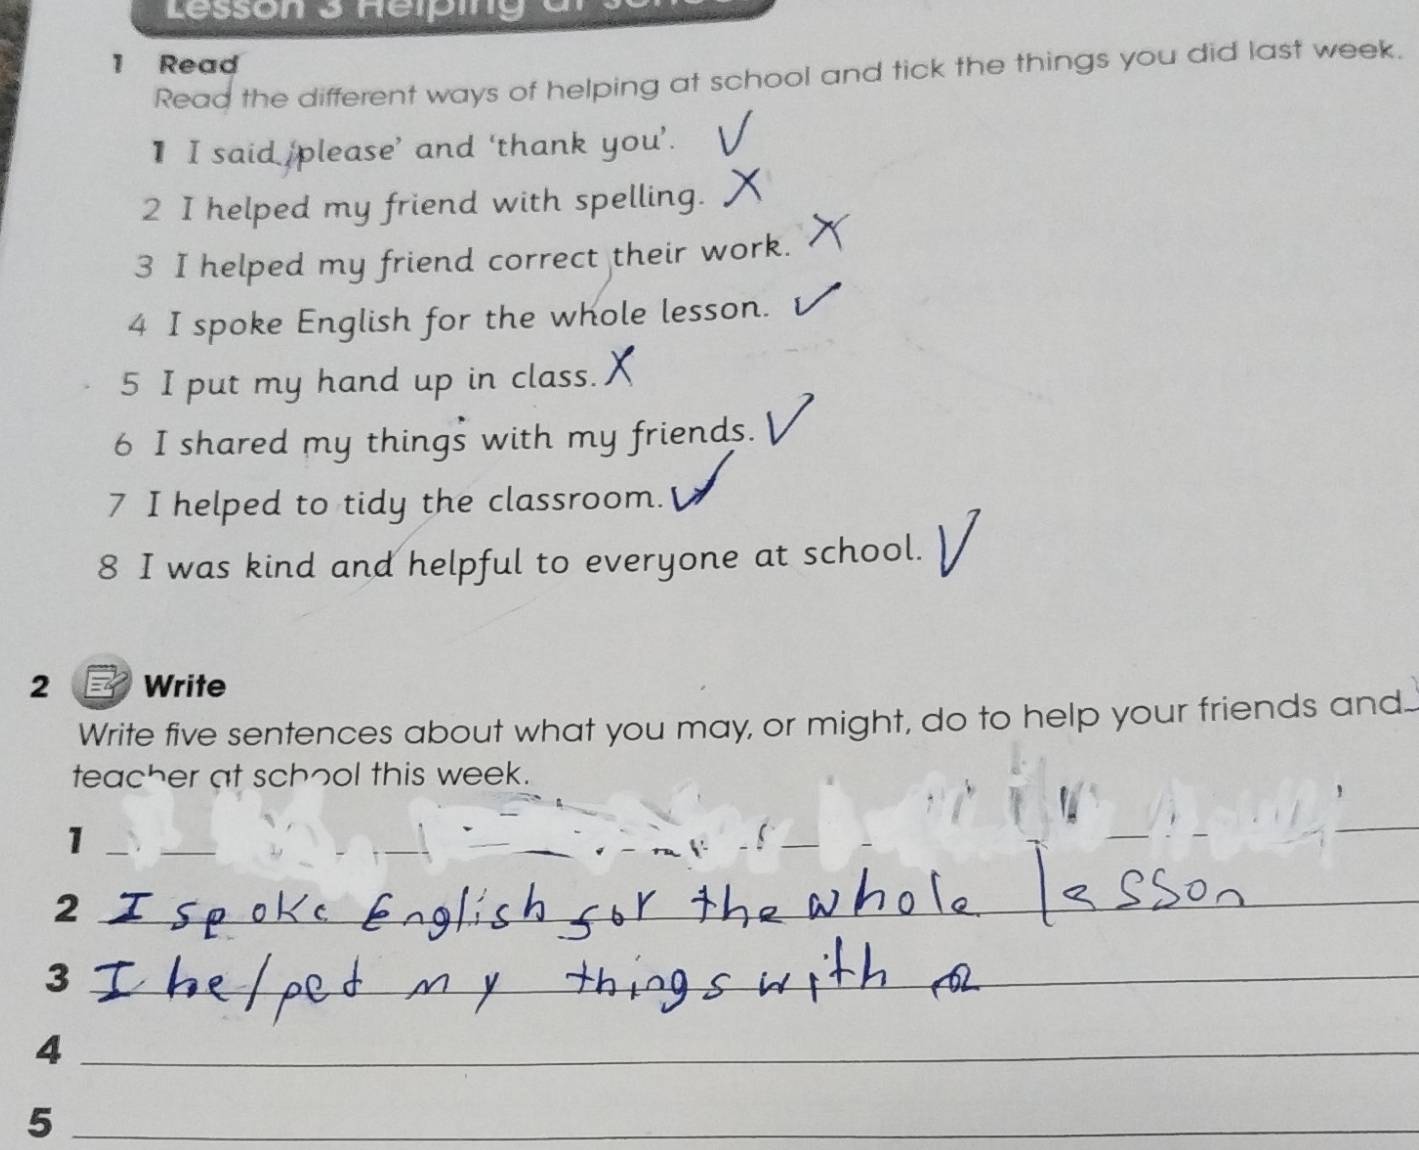 Lesson 3 Helping at
1 Read
Read the different ways of helping at school and tick the things you did last week.
1 I said 'please' and 'thank you'.
2 I helped my friend with spelling.
3 I helped my friend correct their work.
4 I spoke English for the whole lesson.
5 I put my hand up in class.
6 I shared my things with my friends.
7 I helped to tidy the classroom.
8 I was kind and helpful to everyone at school.
2 Write
Write five sentences about what you may, or might, do to help your friends and
teacher at school this week.
1
2 I spoke English for the whole lesson
3 I helped my things with
4
5